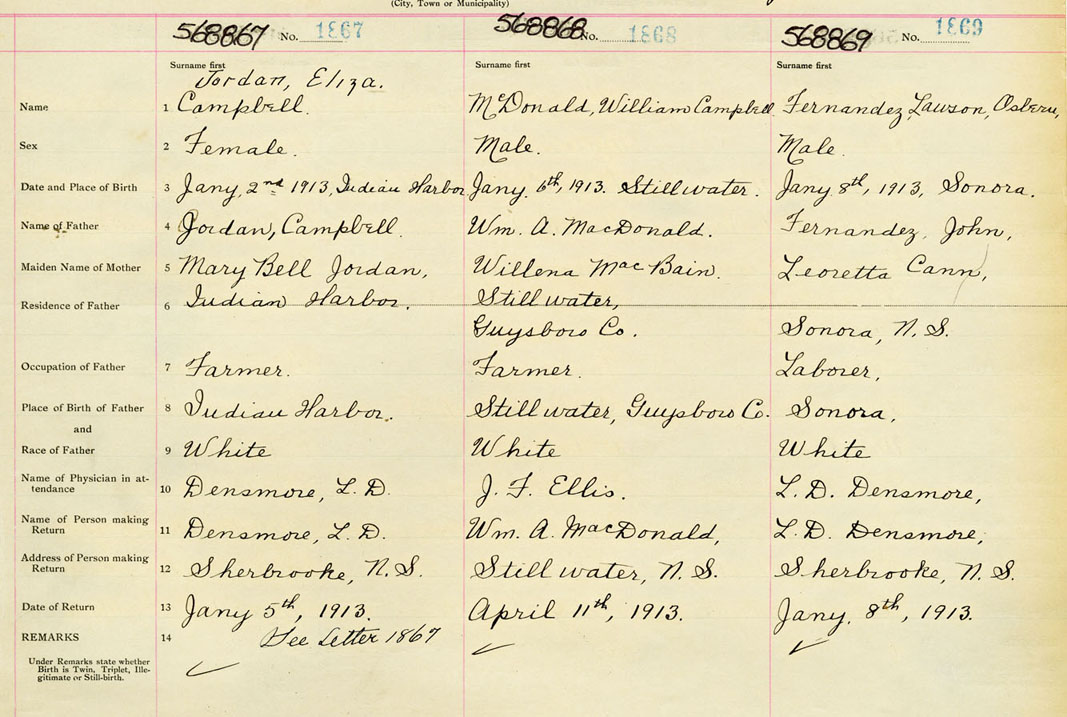 (City, Town or Municipality)
568867 No. 1867 568868 No. 1868 568869 No. 1869
Surname first Surname first Surname first
Jordan, Eliza.
Name 1 Campbell. McDonald, William Campbell Fernandez Lawson, Osburn,
Sex 2 Female. Male. Male.
Date and Place of Birth 3 Jany, 2nd 1913, Indian Harbor Jany. 6th, 1913. Stillwater. Jany 8th, 1913, Sonora.
Name of Father 4 Jordan, Campbell. Wm. A. MacDonald. Fernandez, John,
Maiden Name of Mother 5 Mary Bell Jordan, Willena MacBain. Leoretta Cann,
Residence of Father 6 Indian Harbor. Still water,
Guysboro Co. Sonora, N. S.
Occupation of Father 7 Farmer. Farmer. Laborer,
Place of Birth of Father 8 Indian Harbor. Still water, Guysboro Co. Sonora,
and
Race of Father 9 White White White
Name of Physician in at-
tendance 10 Densmore, L. D. J. F. Ellis. L. D. Densmore,
Name of Person making
Return 11 Densmore, L. D. Wm. A. MacDonald, L. D. Densmore,
Address of Person making
Return 12 Sherbrooke, N. S. Still water, N. S. Sherbrooke, N. S.
Date of Return 13 Jany 5th, 1913. April 11th, 1913. Jany. 8th, 1913.
REMARKS 14 See Letter 1867
Under Remarks state whether
Birth is Twin, Triplet, Ille-
gitimate or Still-birth.